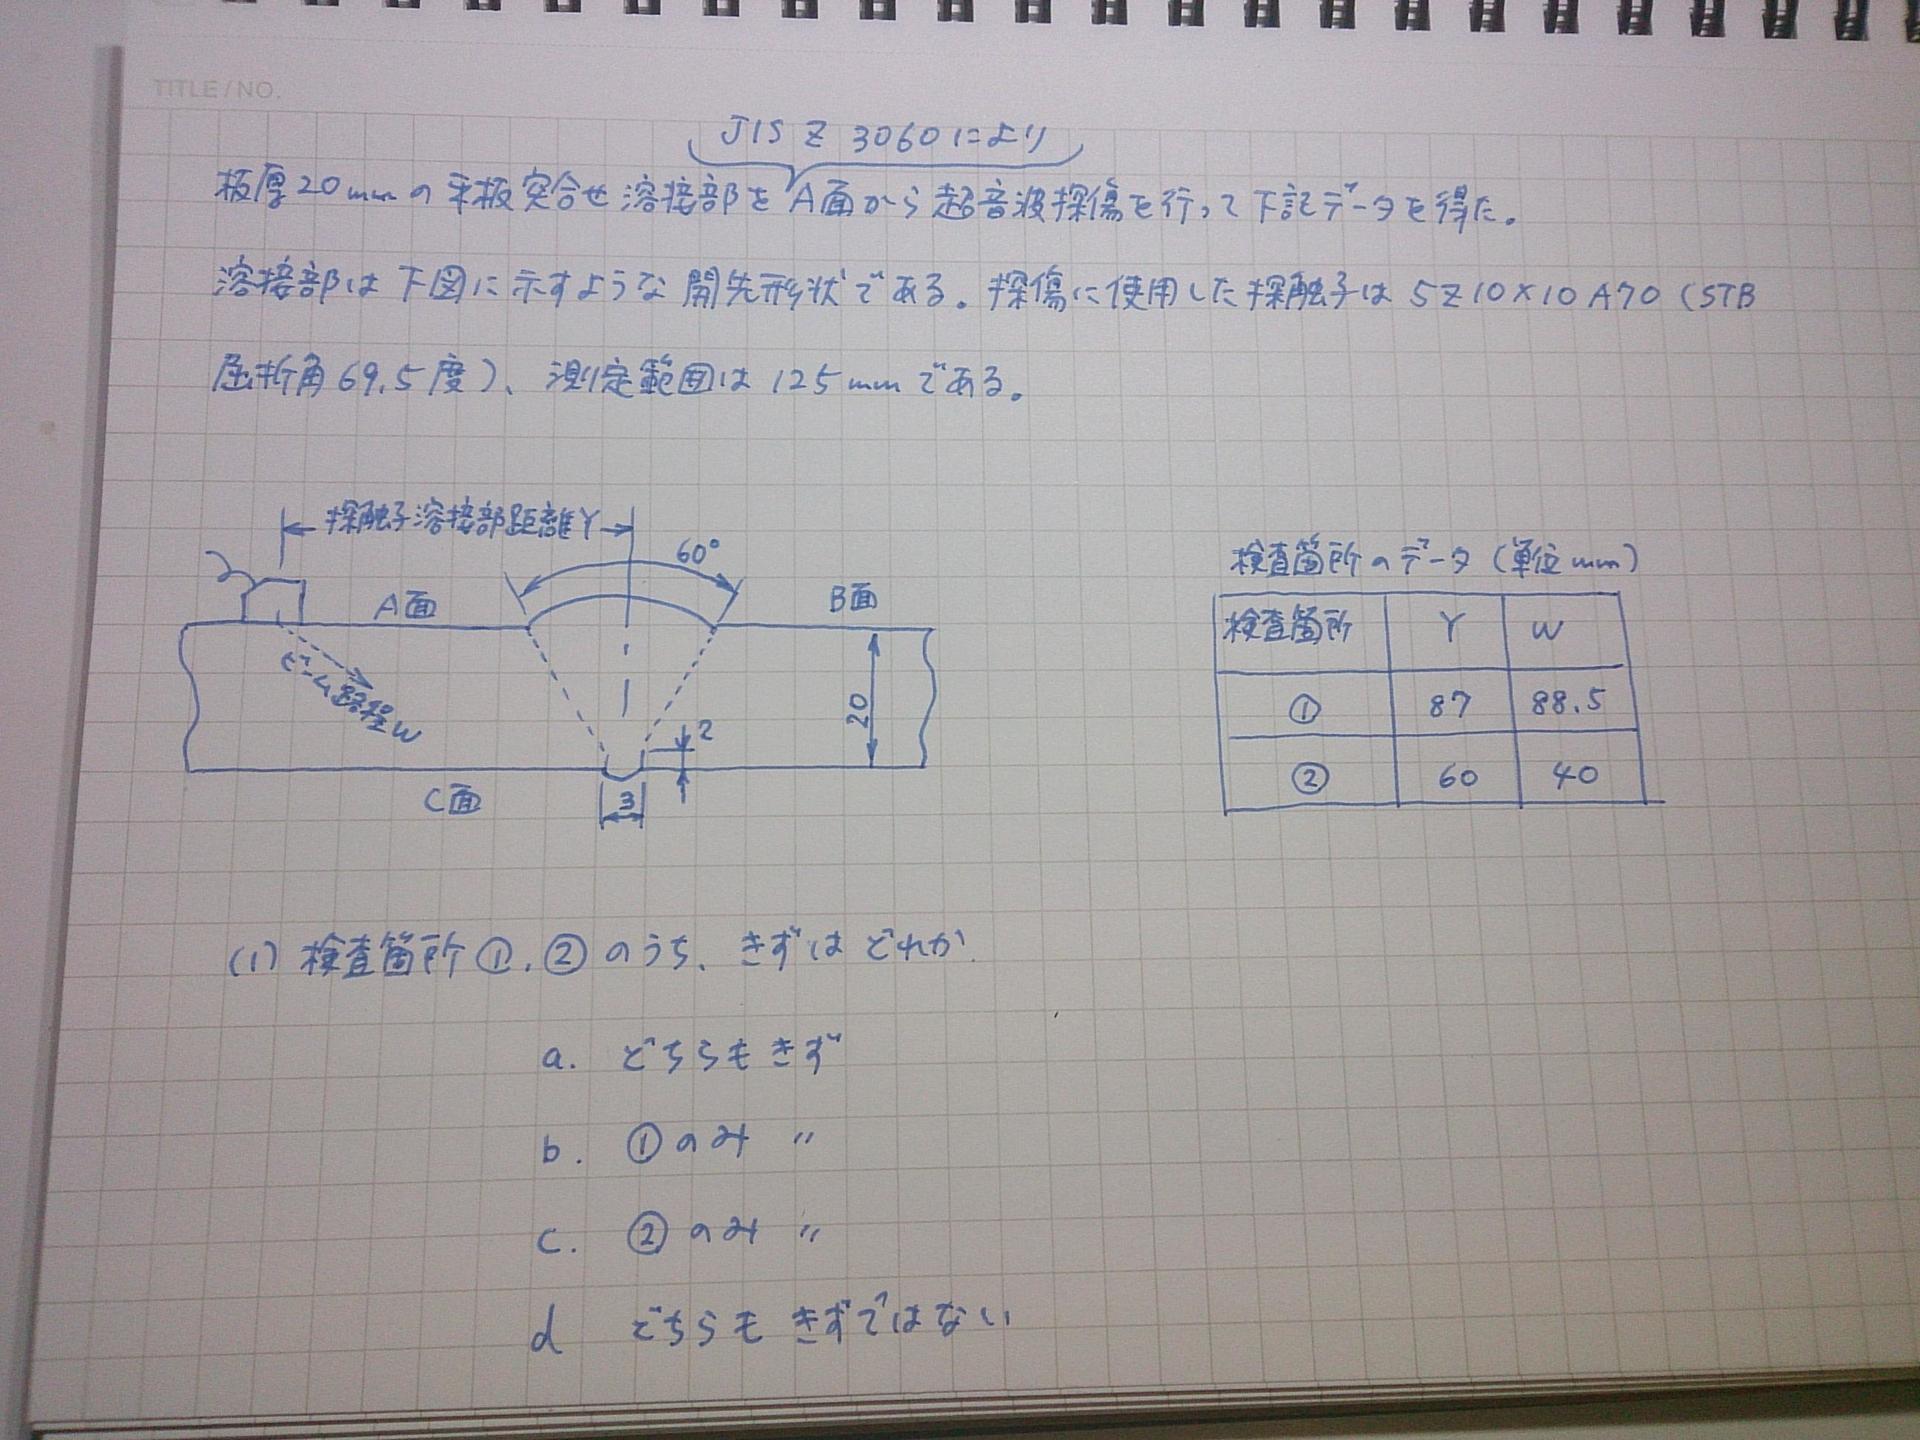 TITLE/NO.
JIS Z 3060により
板厚20mmの平板突合せ溶接部をA面から超音波探傷を行って下記データを得た。
溶接部は下図に示すような開先形状である。探傷に使用した探触子は5Z10×10A70(STB
屈折角69.5度)、測定範囲は125mmである。
探触子溶接部距離Y
60°
A面
B面
ビーム路程W
20
2
3
C面
検査箇所のデータ(単位mm)
検査箇所 Y W
① 87 88.5
② 60 40
(1) 検査箇所①、②のうち、きずはどれか
a. どちらもきず
b. ①のみ 〃
c. ②のみ 〃
d どちらもきずではない